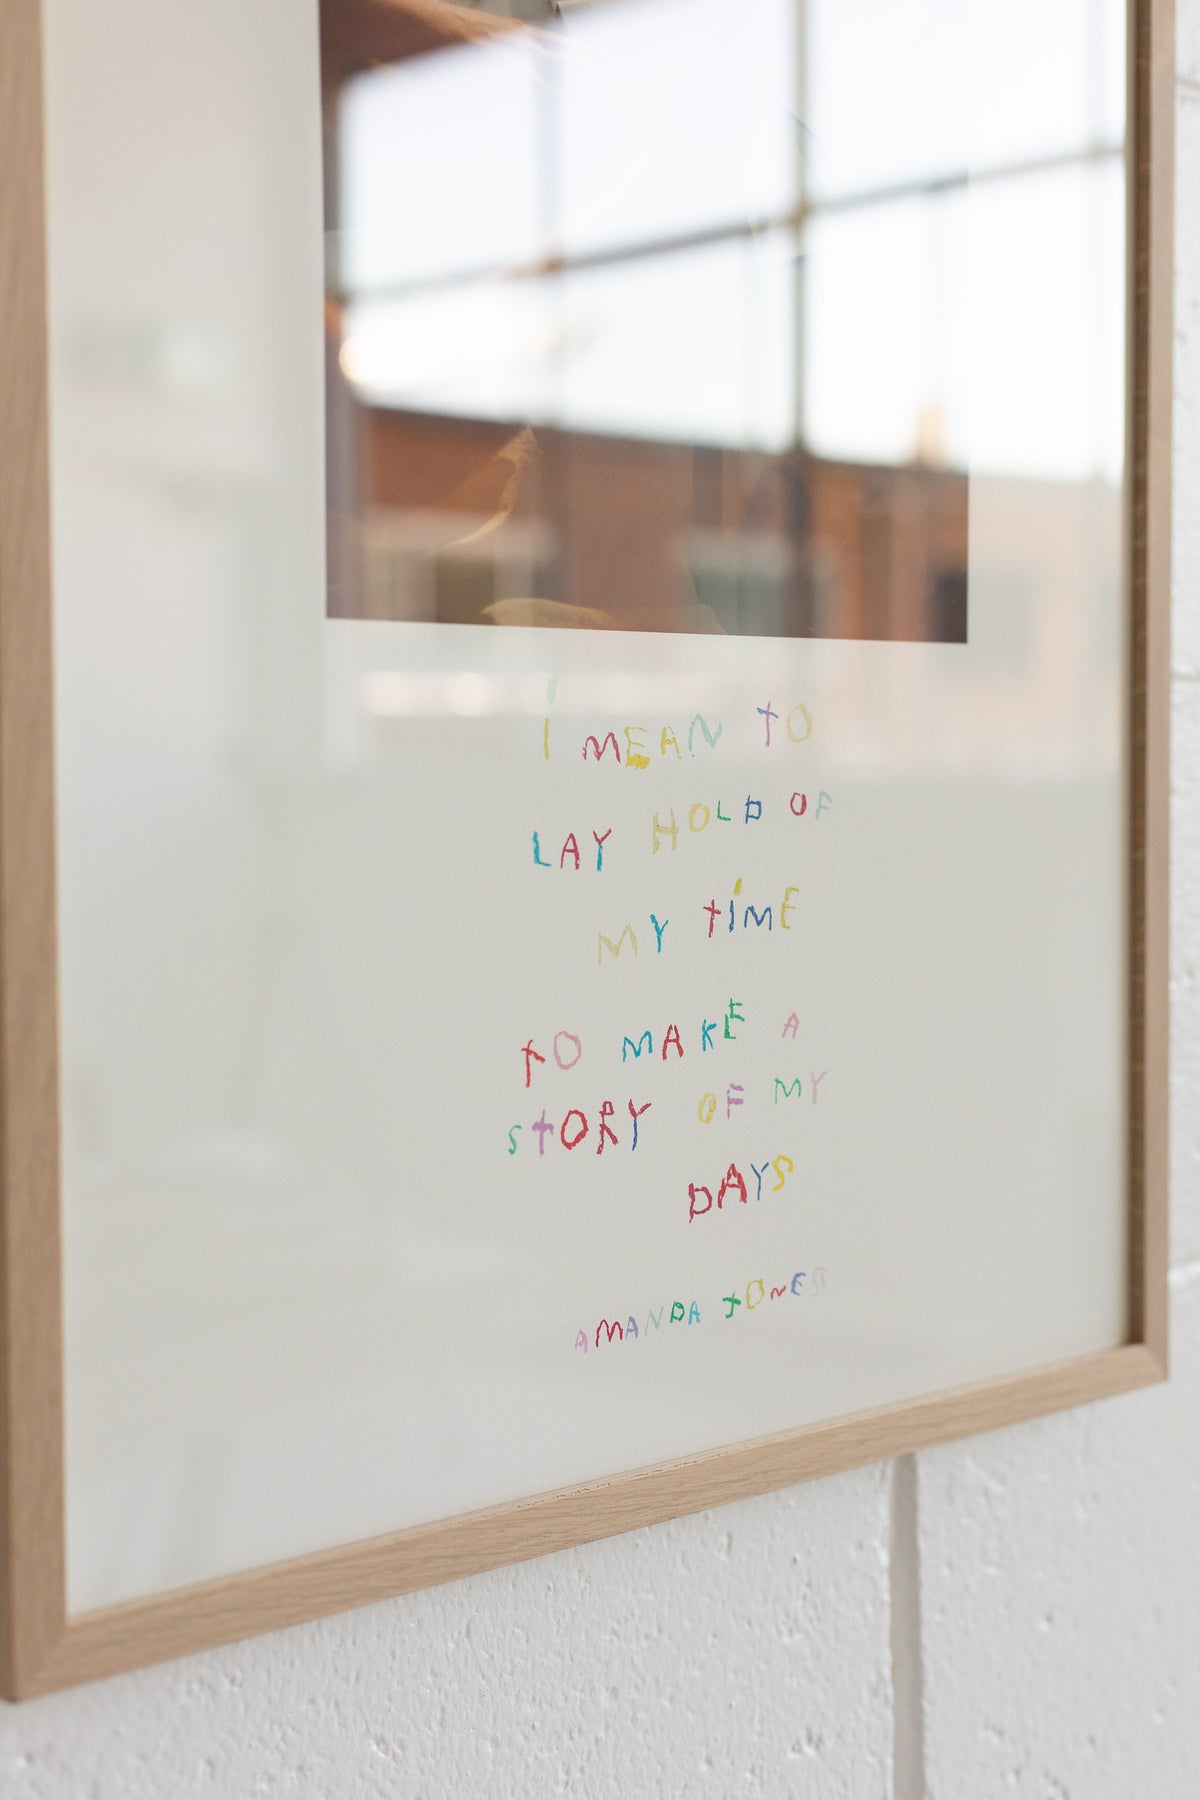 i MEAN TO
LAY HOLD OF
MY TiME
TO MAKE A
STORY OF MY
DAYS
AMANDA JONES